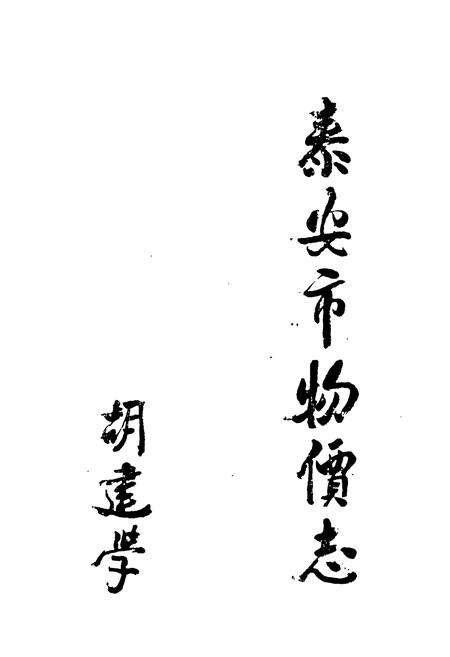 泰安市物價志
胡建学